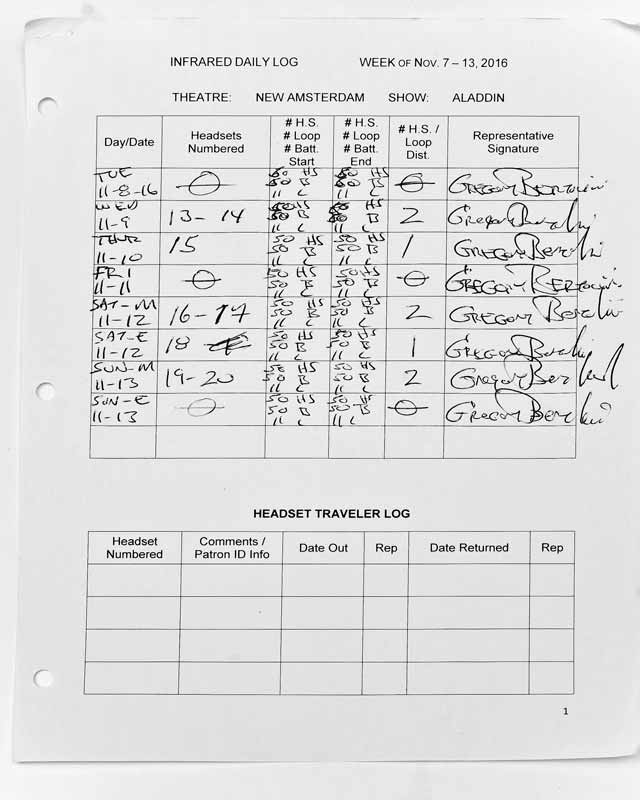 INFRARED DAILY LOG WEEK OF NOV. 7 – 13, 2016
THEATRE: NEW AMSTERDAM SHOW: ALADDIN
Day/Date Headsets Numbered # H.S. # Loop # Batt. Start # H.S. # Loop # Batt. End # H.S. / Loop Dist. Representative Signature
TUE 11-8-16 0 50 HS 50 B 11 L 50 HS 50 B 11 L 0 GREGORY BERTOLINI
WED 11-9 13-14 50 HS 50 B 11 L 50 HS 50 B 11 L 2 Gregory
THUR 11-10 15 50 HS 50 B 11 L 50 HS 50 B 11 L 1 GREGORY
FRI 11-11 0 50 HS 50 B 11 L 50 HS 50 B 11 L 0 GREGORY BERTOLINI
SAT-M 11-12 16-17 50 HS 50 B 11 L 50 HS 50 B 11 L 2 GREGORY
SAT-E 11-12 18 50 HS 50 B 11 L 50 HS 50 B 11 L 1 GREGORY
SUN-M 11-13 19-20 50 HS 50 B 11 L 50 HS 50 B 11 L 2 Gregory
SUN-E 11-13 0 50 HS 50 B 11 L 50 HS 50 B 11 L 0 GREGORY
HEADSET TRAVELER LOG
Headset Numbered Comments / Patron ID Info Date Out Rep Date Returned Rep
1